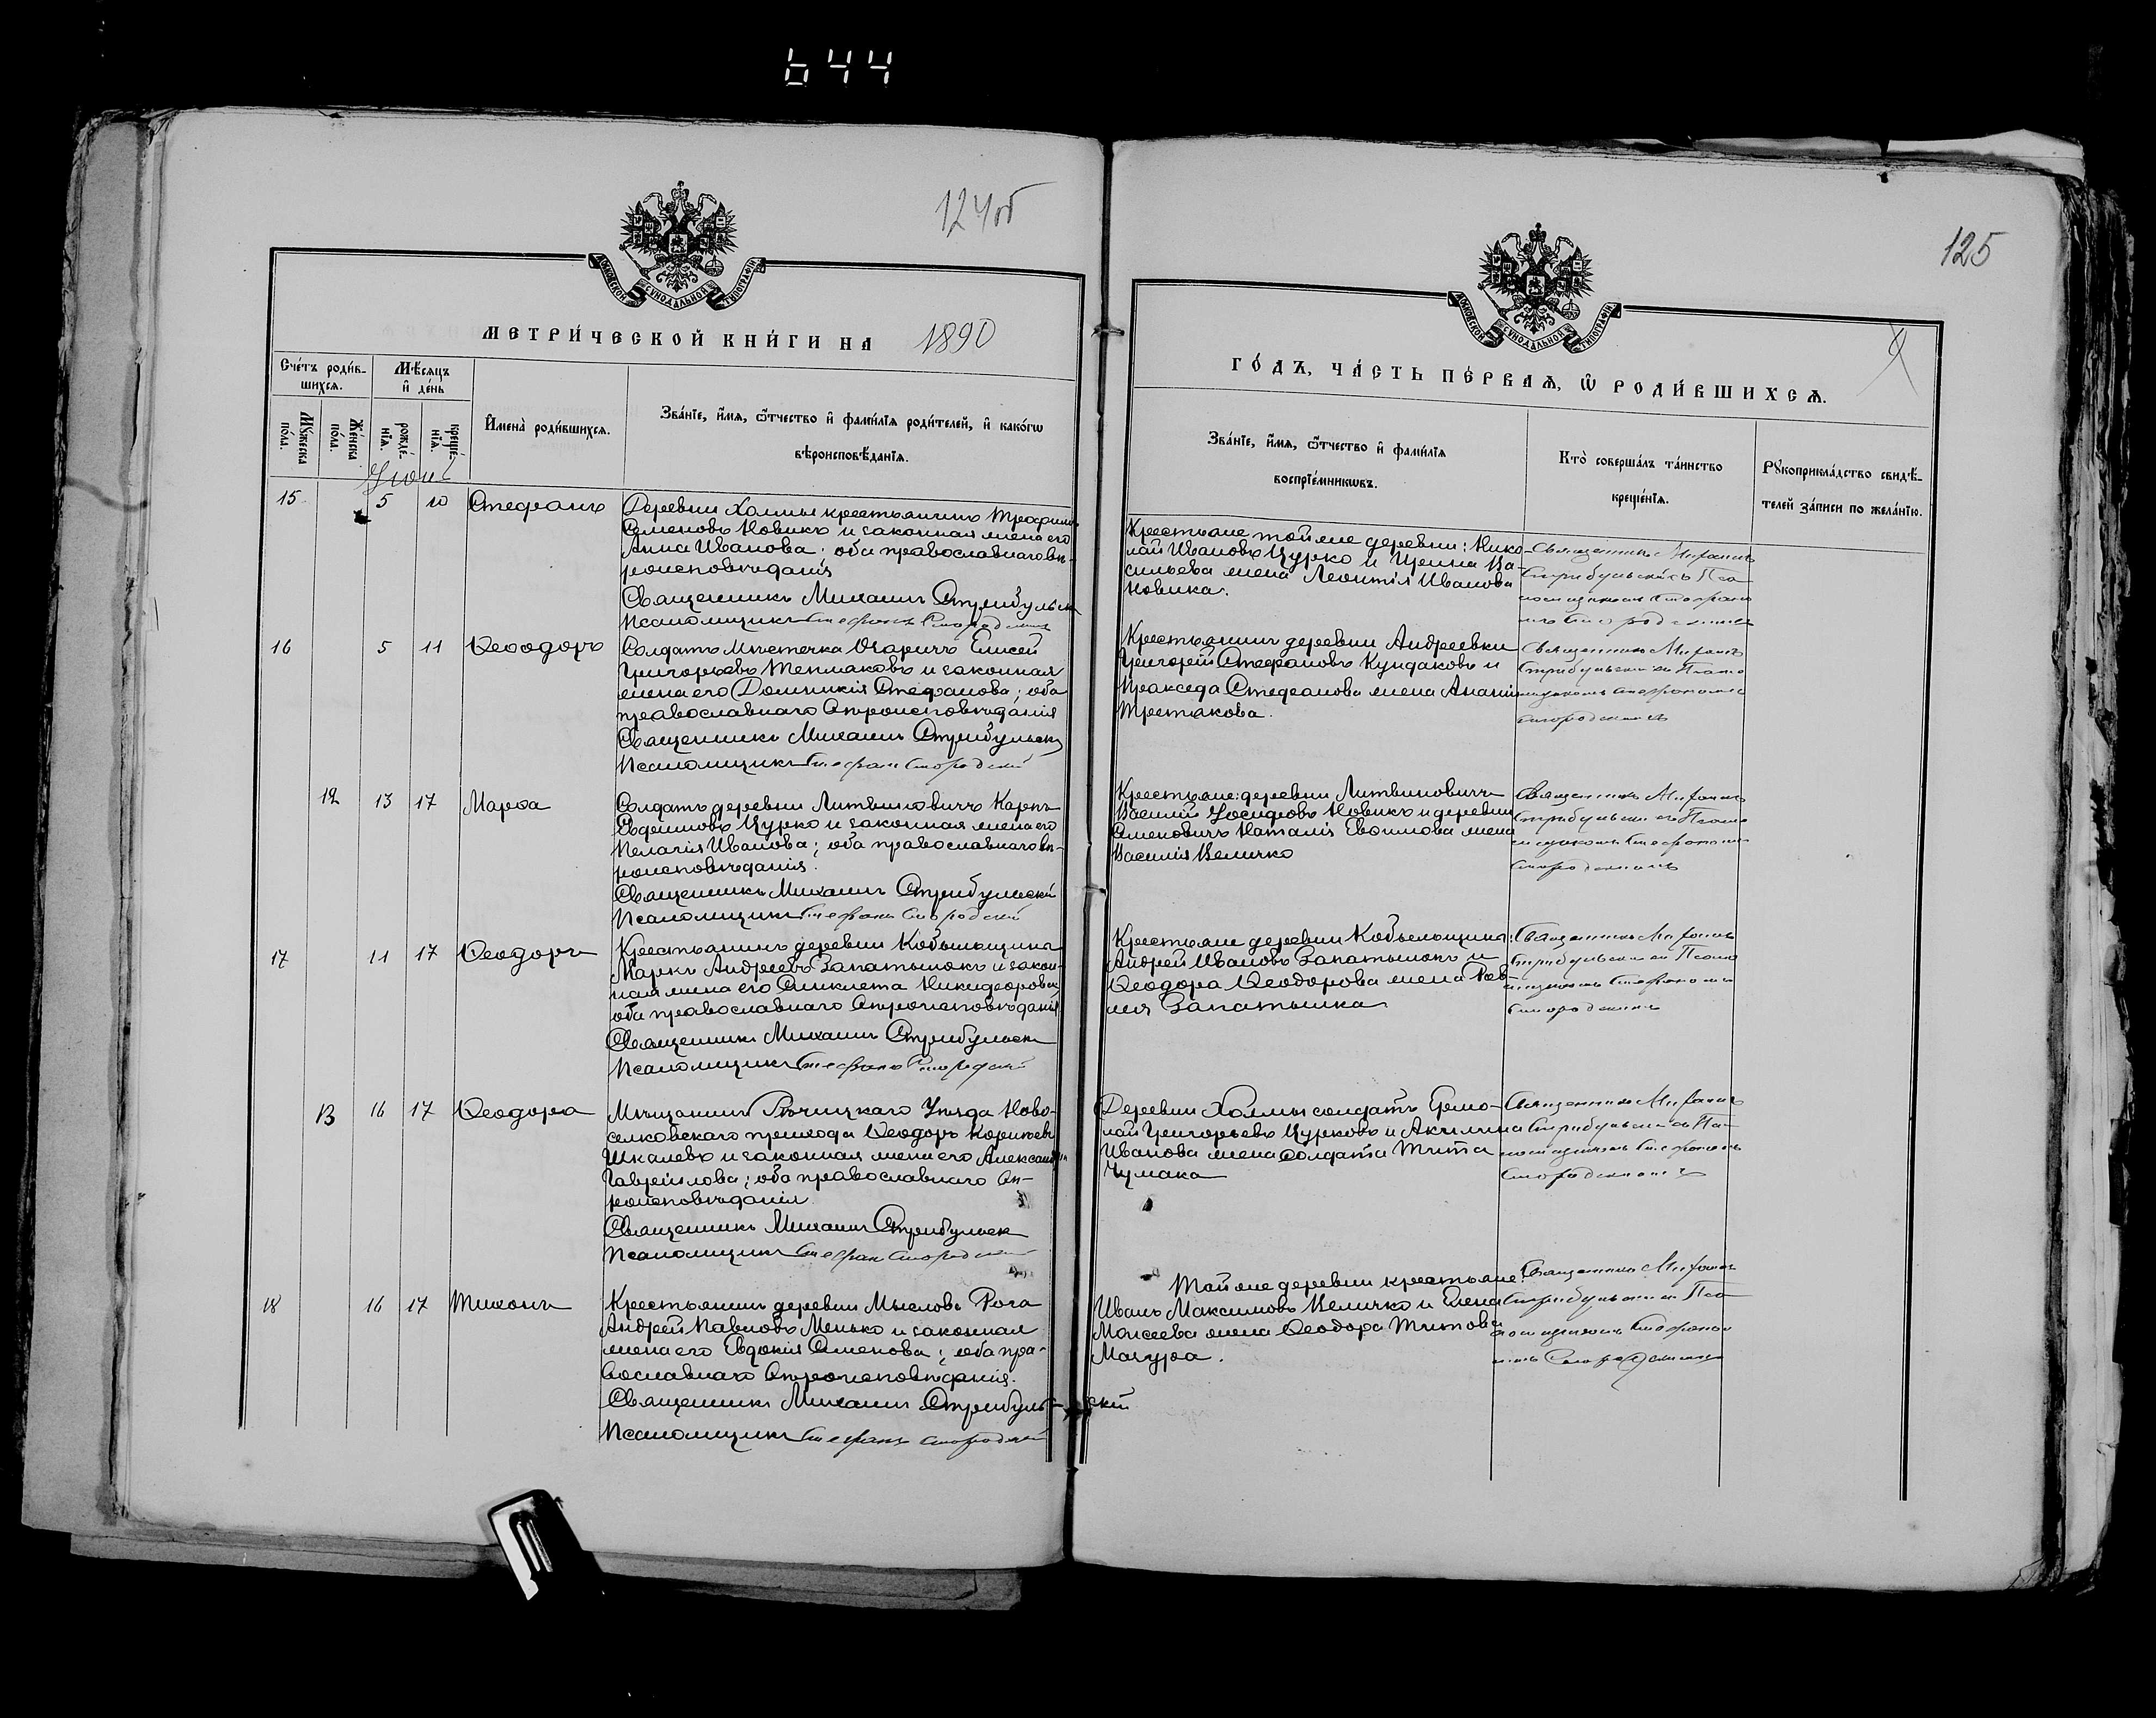 644
124об
МОСКОВСКОЙ СѴНОДАЛЬНОЙ ТИПОГРАФІИ
МЕТРИ́ЧЕСКОЙ КНИ́ГИ НА 1890
Сче́тъ роди́в-
шихся.
Мѣ́сяцъ
и҆ де́нь
Мꙋ́жеска
по́ла.
Же́нска
по́ла.
рожде́-
нїѧ.
креще́-
нїѧ.
И҆мена̀ роди́вшихсѧ.
Зва́нїе, и҆́мѧ, ѻ҆́тчество и҆ фами́лїѧ роди́телей, и҆ како́гѡ
вѣроисповѣ́данїѧ.
Іюнь
15 5 10 Стефанъ
Деревни Холмы крестьянинъ Трофимъ
Семеновъ Новикъ и законная жена его
Анна Иванова; оба православнаго вѣ-
роисповѣданія
Священникъ Михаилъ Стрибульск
Псаломщикъ Стефанъ Смородскій
16 5 11 Ѳеодоръ
Солдатъ мѣстечка Озаричъ Елисей
Григорьевъ Тепляковъ и законная
жена его Домникія Стефанова; оба
православнаго вѣроисповѣданія
Священникъ Михаилъ Стрибульск
Псаломщикъ Стефанъ Смородскій
12 13 17 Марѳа
Солдатъ деревни Литвиновичъ Карпъ
Евфимовъ Цурко и законная жена его
Пелагія Иванова; оба православнаго вѣ-
роисповѣданія.
Священникъ Михаилъ Стрибульскій
Псаломщикъ Стефанъ Смородскій
17 11 17 Ѳеодоръ
Крестьянинъ деревни Кобыльщина
Маркъ Андреевъ Запатылокъ и закон-
ная жена его Аникиета Никифорова;
оба православнаго вѣроисповѣданія
Священникъ Михаилъ Стрибульск
Псаломщикъ Стефанъ Смородскій
13 16 17 Ѳеодора
Мѣщанинъ Рѣчицкаго Уѣзда Ново-
селковскаго прихода Ѳеодоръ Корнѣевъ
Шкалевъ и законная жена его Александра
Гавріилова; оба православнаго вѣ-
роисповѣданія
Священникъ Михаилъ Стрибульск
Псаломщикъ Стефанъ Смородскій
18 16 17 Тихонъ
Крестьянинъ деревни Мысловъ Рога
Андрей Павловъ Менько и законная
жена его Евдокія Семенова; оба пра-
вославнаго вѣроисповѣданія.
Священникъ Михаилъ Стрибульскій
Псаломщикъ Стефанъ Смородскій
125
МОСКОВСКОЙ СѴНОДАЛЬНОЙ ТИПОГРАФІИ
ГО́ДЪ, ЧА́СТЬ ПЕ́РВАѦ, Ѡ҆ РОДИ́ВШИХСѦ.
Зва́нїе, и҆́мѧ, ѻ҆́тчество и҆ фами́лїѧ
воспрїе́мникѡвъ.
Кто̀ соверша́лъ та́инство
креще́нїѧ.
Рꙋкоприкла́дство свидѣ́-
телей за́писи по жела́нїю.
Крестьяне той же деревни: Нико-
лай Ивановъ Цурко и Ирина Ва-
сильева жена Леонтія Иванова
Новика.
Священникъ Михаилъ
Стрибульскій съ Пса-
ломщикомъ Стефано-
мъ Смородскимъ
Крестьянинъ деревни Андреевки
Григорій Стефановъ Кундаковъ и
Праксeда Стефанова жена Ананія
Третьякова.
Священникъ Михаилъ
Стрибульскій съ Псало-
мщикомъ Стефаномъ
Смородскимъ
Крестьяне: деревни Литвиновичъ
Василій Іосифовъ Новикъ и деревни
Семеновичъ Наталія Евѳимова жена
Василія Величко
Священникъ Михаилъ
Стрибульскій съ Псало-
мщикомъ Стефаномъ
Смородскимъ
Крестьяне деревни Кобыльщина:
Андрей Ивановъ Запатылокъ и
Ѳеодора Ѳеодорова жена Пав-
ла Запатылка
Священникъ Михаилъ
Стрибульскій съ Псало-
мщикомъ Стефаномъ
Смородскимъ
Деревни Холмы солдатъ Ермо-
лай Григорьевъ Цурковъ и Акилина
Иванова жена солдата Тита
Чумака
Священникъ Михаилъ
Стрибульскій съ Пса-
ломщикомъ Стефаномъ
Смородскимъ
Той же деревни крестьяне:
Иванъ Максимовъ Величко и Елена
Моисеева жена Ѳеодора Титова
Мачура.
Священникъ Михаилъ
Стрибульскій съ Пса-
ломщикомъ Стефано-
мъ Смородскимъ